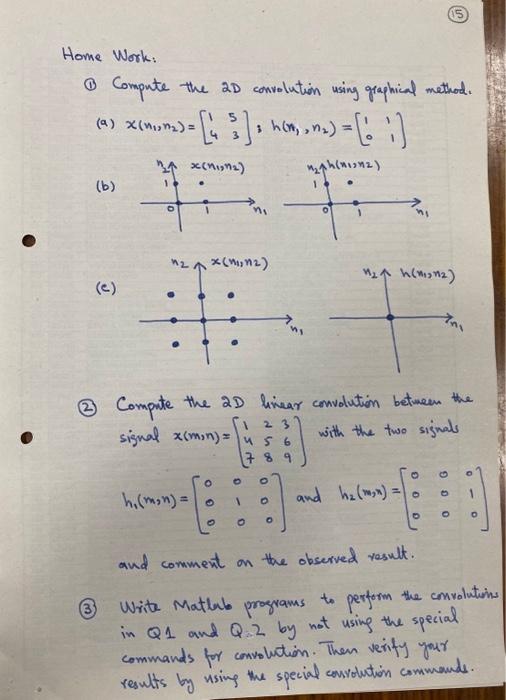 15
Home Work:
① Compute the 2D convolution using graphical method.
(a) x(n₁,n₂) = [1 5; 4 3] , h(n₁,n₂) = [1 1; 0 1]
n₂ x(n₁,n₂) n₂ h(n₁,n₂)
(b) 1 1
0 1 n₁ 0 1 n₁
n₂ x(n₁,n₂) n₂ h(n₁,n₂)
(c)
n₁ n₁
② Compute the 2D linear convolution between the
signal x(m,n) = [1 2 3; 4 5 6; 7 8 9] with the two signals
h₁(m,n) = [0 0 0; 0 1 0; 0 0 0] and h₂(m,n) = [0 0 0; 0 0 1; 0 0 0]
and comment on the observed result.
③ Write Matlab programs to perform the convolutions
in Q1 and Q.2 by not using the special
commands for convolution. Then verify your
results by using the special convolution commands.